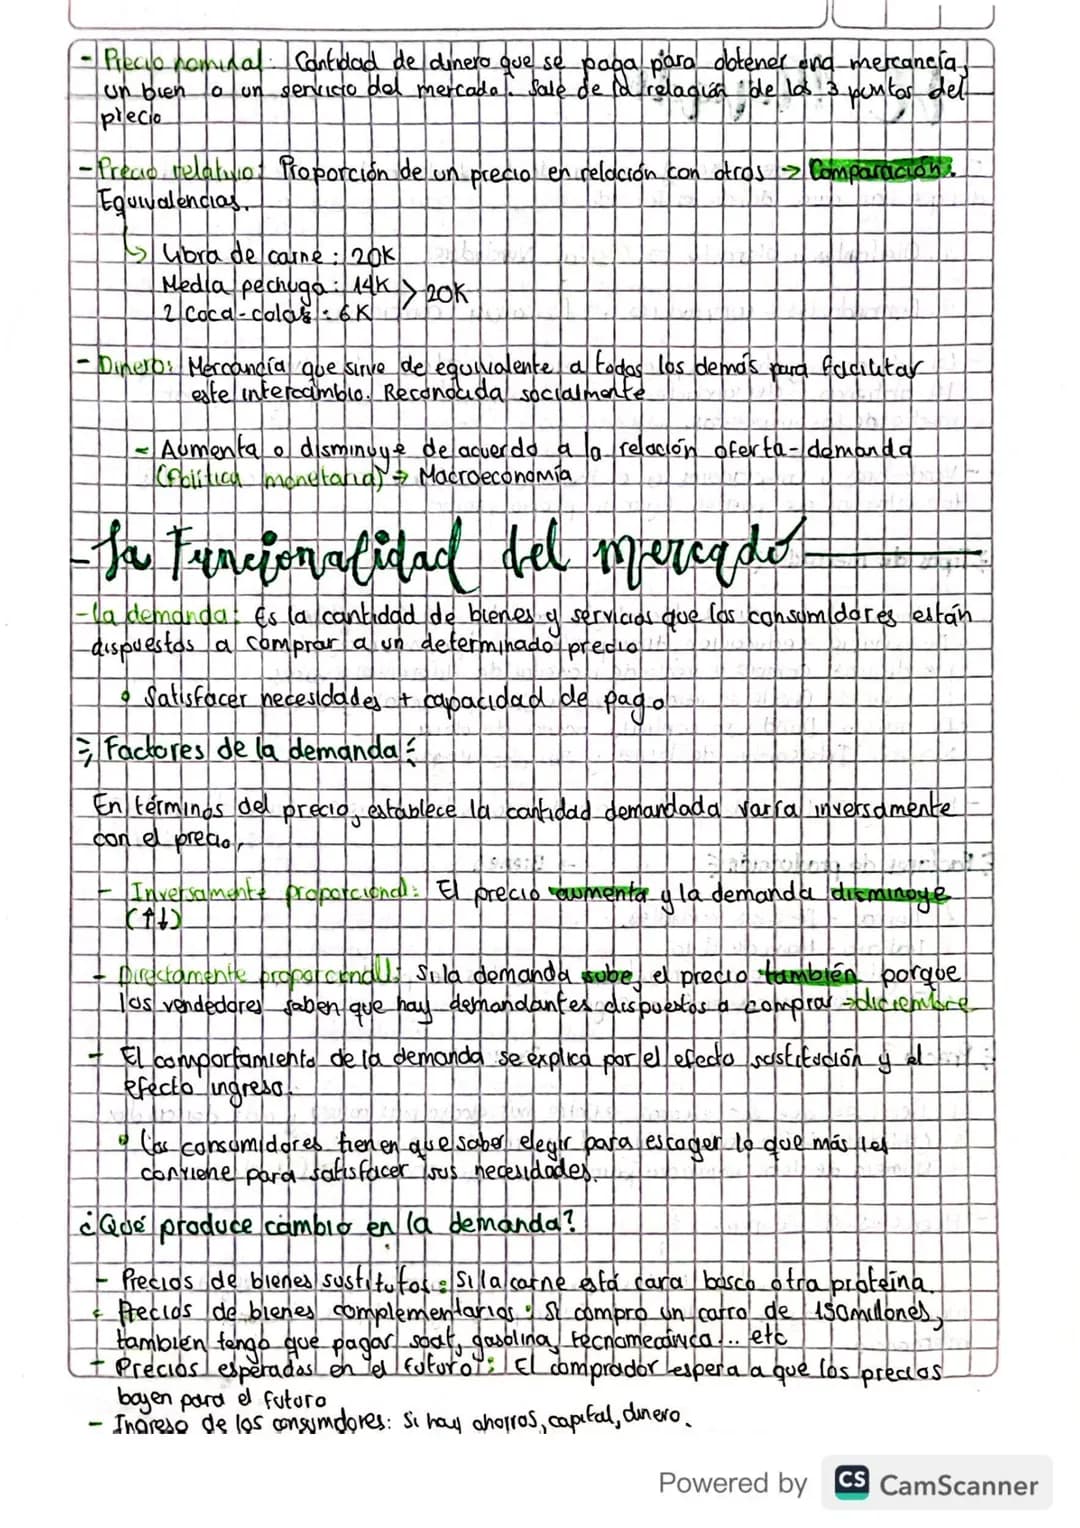 - Precio nominal: Cantidad de dinero que se paga para obtener una mercancía,
un bien o un servicio del mercado. Sale de la relación de los 3 puntos del
precio
- Precio relativo: Proporción de un precio en relación con otros → Comparación.
Equivalencias.
↳ Libra de carne: 20K
Media pechuga: 14K > 20K
2 Coca-colas: 6K
- Dinero: Mercancía que sirve de equivalente a todas los demás para facilitar
este intercambio. Reconocida socialmente
- Aumenta o disminuye de acuerdo a la relación oferta-demanda
(Política monetaria) → Macroeconomía
- La Funcionalidad del mercado
- La demanda: Es la cantidad de bienes y servicios que los consumidores están
dispuestos a comprar a un determinado precio
• Satisfacer necesidades + capacidad de pago
Factores de la demanda
En términos del precio, establece la cantidad demandada varía inversamente
con el precio,
- Inversamente proporcional: El precio aumenta y la demanda disminuye
(↑↓)
- Directamente proporcional: Si la demanda sube, el precio también porque
los vendedores saben que hay demandantes dispuestos a comprar → diciembre
- El comportamiento de la demanda se explica por el efecto sustitución y el
efecto ingreso.
• Los consumidores tienen que saber elegir para escoger lo que más les
conviene para satisfacer sus necesidades.
¿Qué produce cambio en la demanda?
- Precios de bienes sustitutos: Si la carne está cara busco otra proteína
- Precios de bienes complementarios: Si compro un carro de 150 millones,
también tengo que pagar soat, gasolina, tecnomecánica... etc
- Precios esperados en el futuro: El comprador espera a que los precios
bajen para el futuro
- Ingreso de los consumidores: Si hay ahorros, capital, dinero.
Powered by CS CamScanner